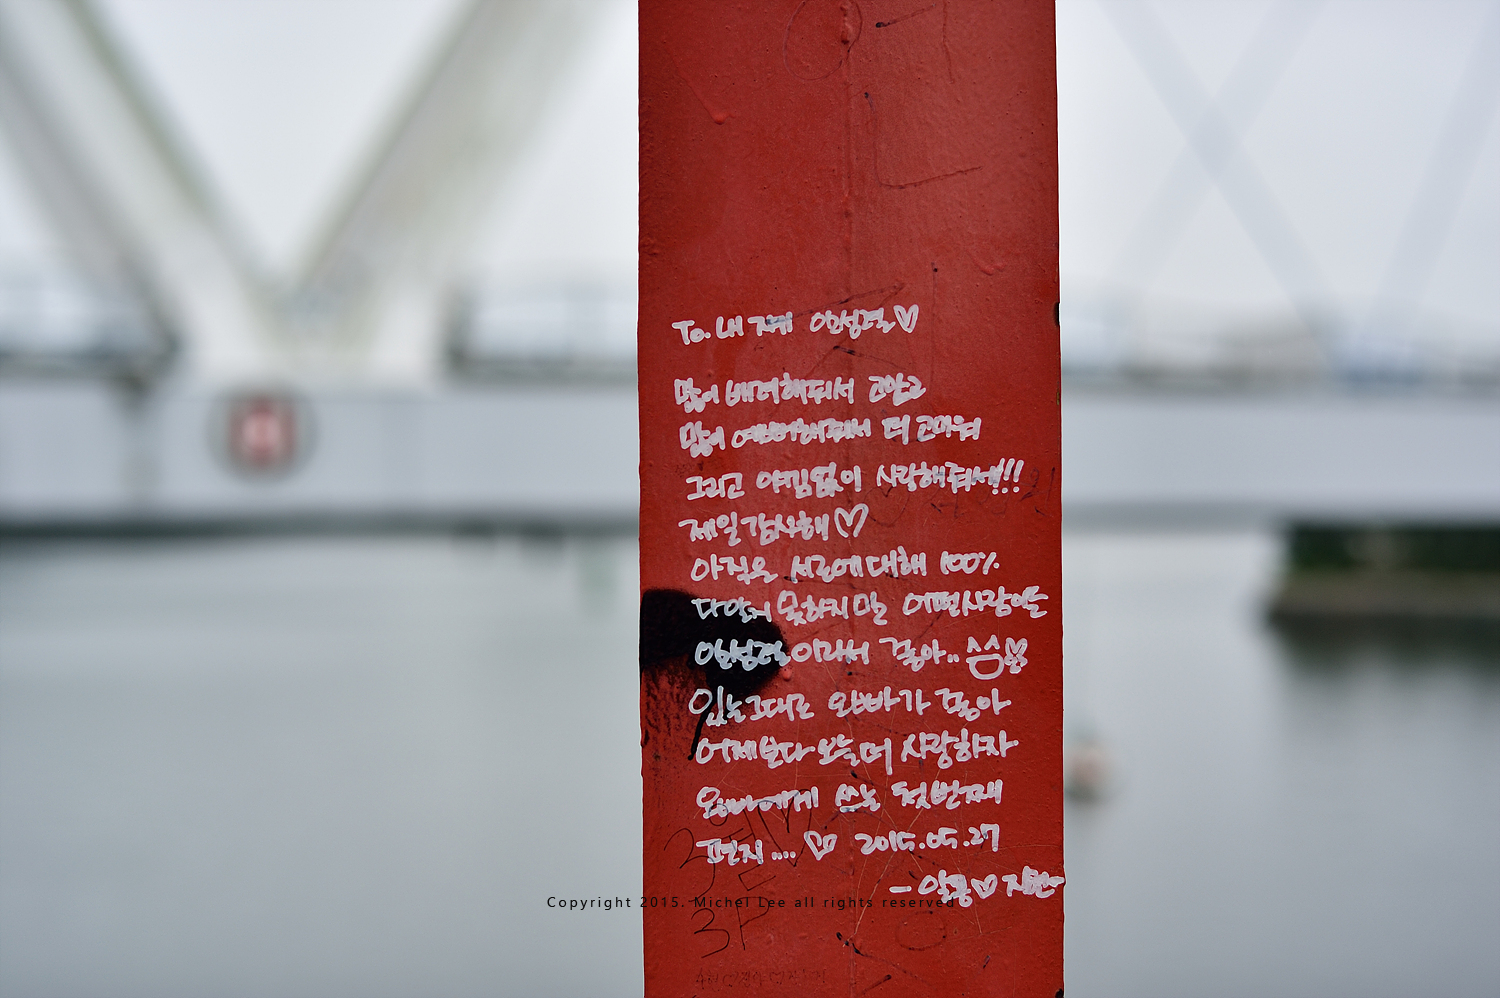 To. 내 자기 임성렬♡
많이 배려해줘서 고맙고
많이 예뻐해줘서 더 고마워
그리고 아낌없이 사랑해줘서!!!
제일 감사해♡
아직은 서로에 대해 100%
다 알지 못하지만 어떤사람이든
임성렬이라서 좋아.. ^^♡
있는그대로 오빠가 좋아
어제보다 오늘 더 사랑하자
오빠에게 쓰는 첫번째
편지.... ♡ 2015.05.27
Copyright 2015. Michel Lee all rights reserved
3P